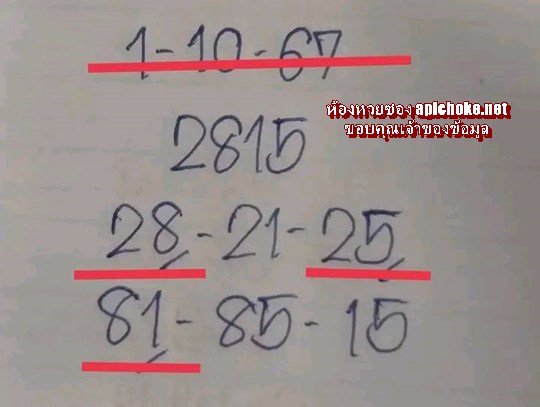 1-10-67
ห้องหวยซอง apichoke.net
ขอบคุณเจ้าของข้อมูล
2815
28-21-25
81-85-15